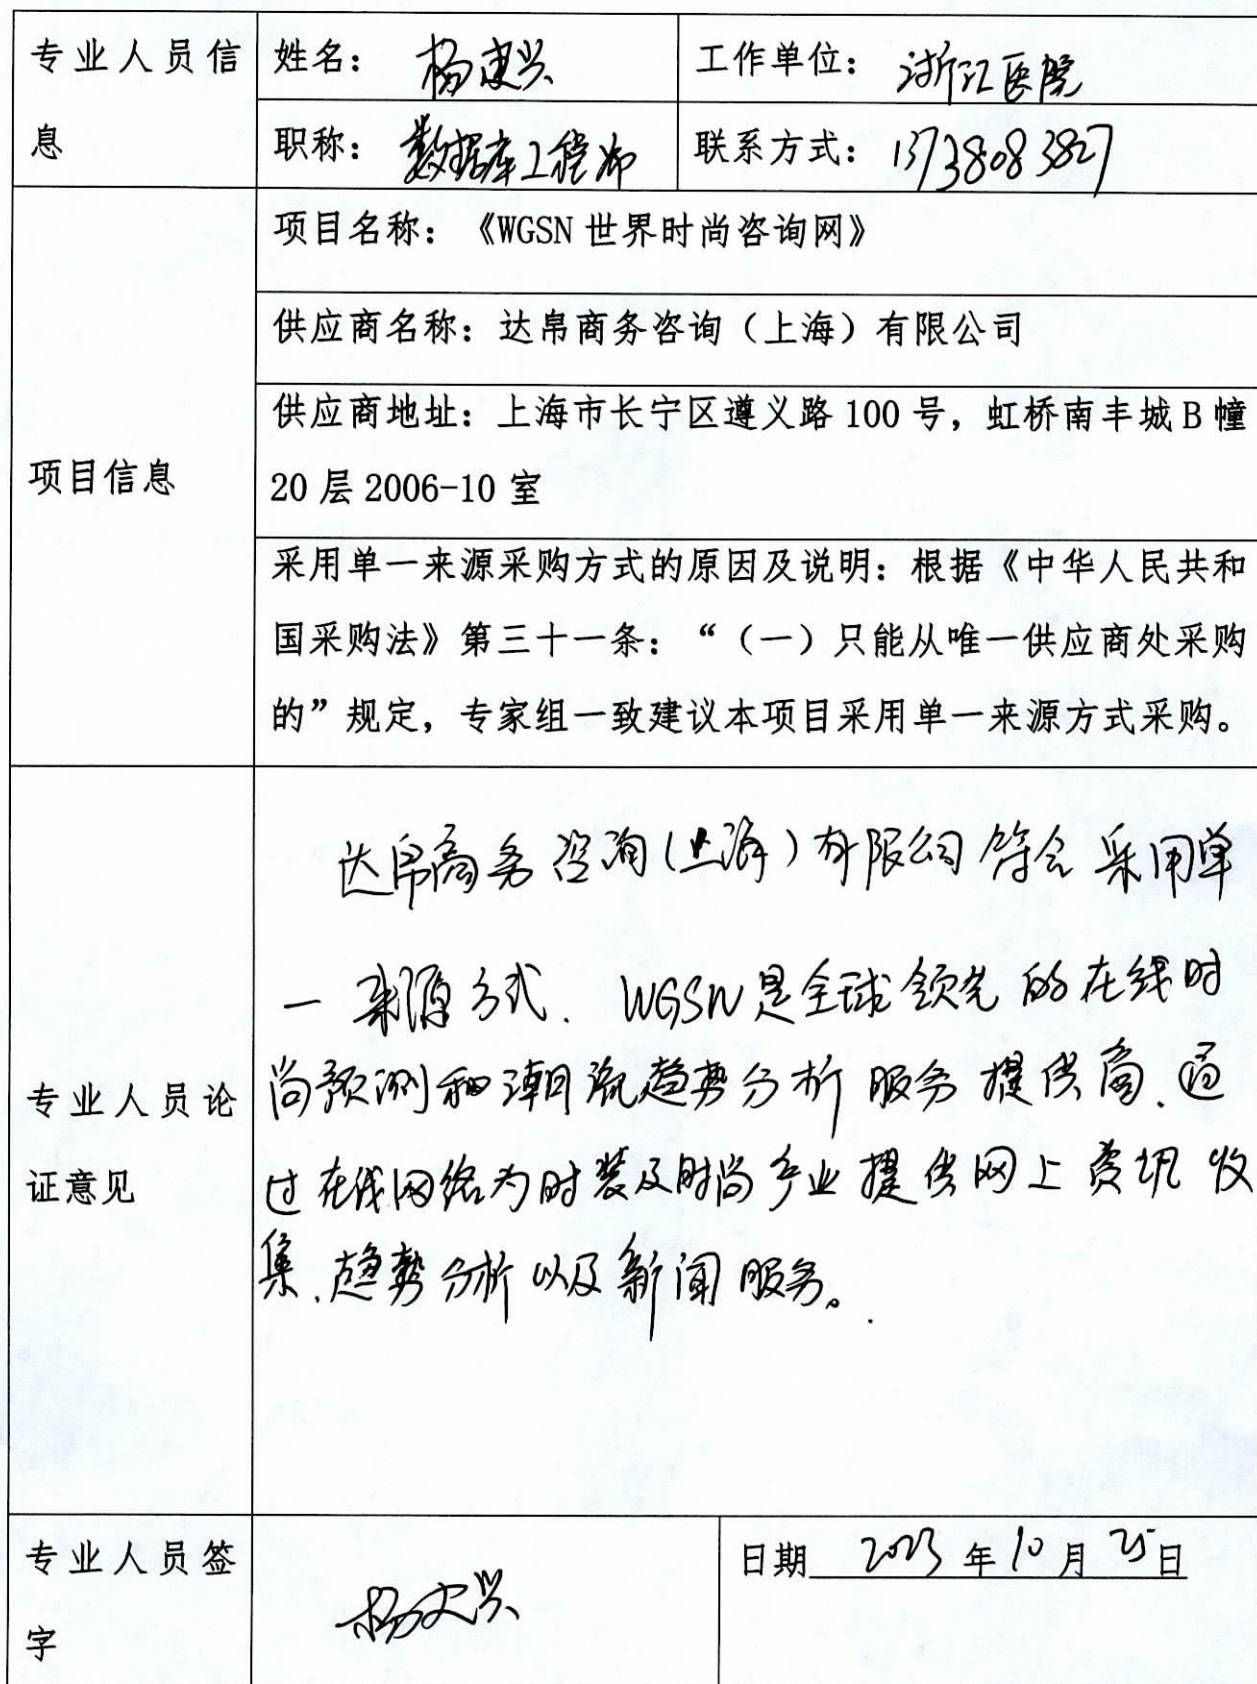 专业人员信息
姓名：杨建兴
工作单位：浙江医院
职称：数据库工程师
联系方式：13738083827
项目信息
项目名称：《WGSN 世界时尚咨询网》
供应商名称：达帛商务咨询（上海）有限公司
供应商地址：上海市长宁区遵义路 100 号，虹桥南丰城 B 幢
20 层 2006-10 室
采用单一来源采购方式的原因及说明：根据《中华人民共和
国采购法》第三十一条：“（一）只能从唯一供应商处采购
的”规定，专家组一致建议本项目采用单一来源方式采购。
专业人员论
证意见
达帛商务咨询(上海)有限公司符合采用单
一来源方式. WGSN是全球领先的在线时
尚预测和潮流趋势分析服务提供商.通
过在线网络为时装及时尚产业提供网上资讯收
集.趋势分析以及新闻服务。
专业人员签
字
杨建兴
日期 2023 年 10 月 25 日